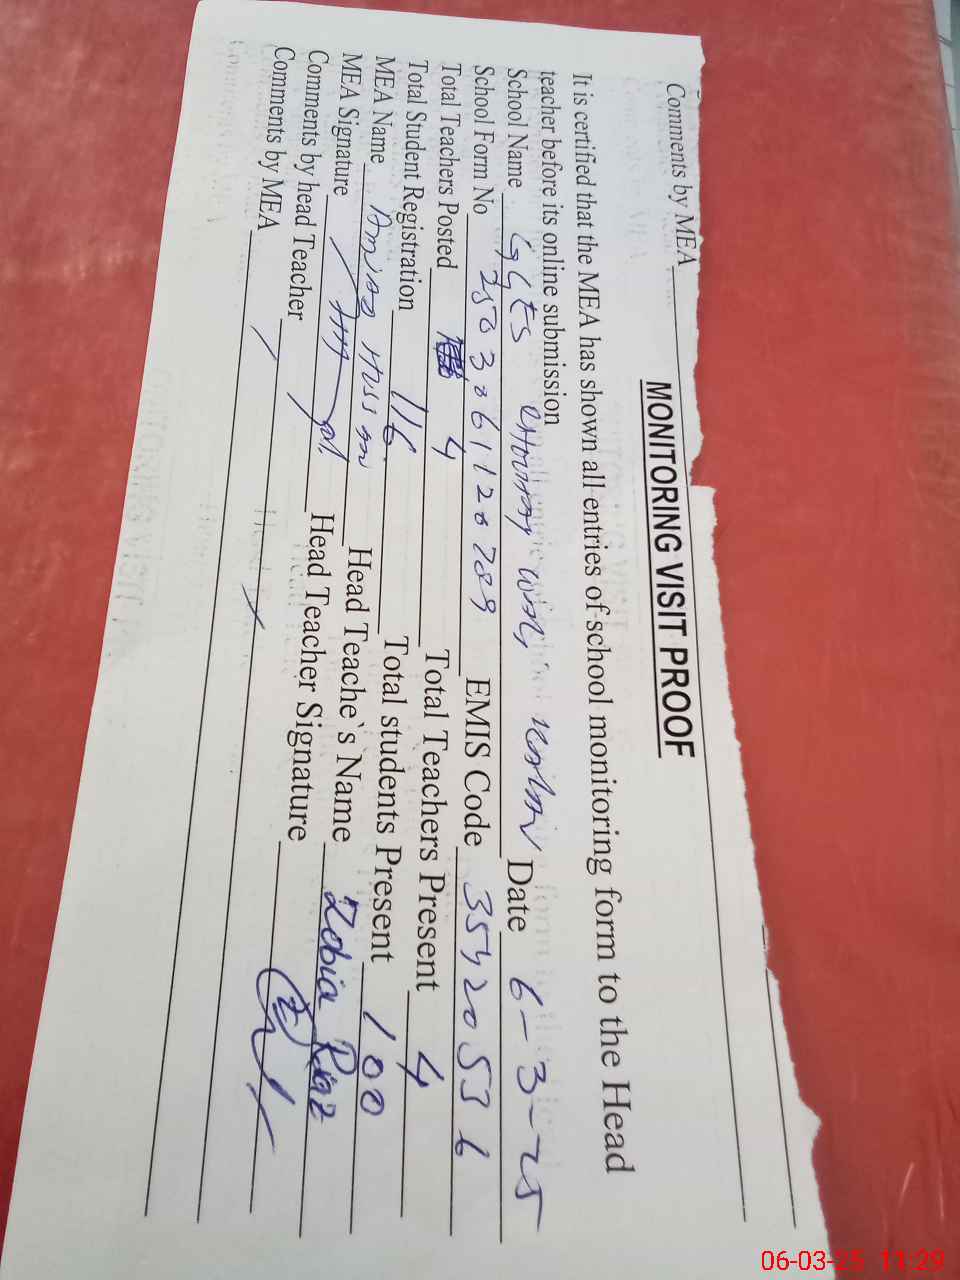 Comments by MEA
MONITORING VISIT PROOF
It is certified that the MEA has shown all entries of school monitoring form to the Head
teacher before its online submission
School Name GGES Date 6-3-25
School Form No EMIS Code 35420536
Total Teachers Posted 4 Total Teachers Present 4
Total Student Registration 116. Total students Present 100
MEA Name Head Teache`s Name Zobia Riaz
MEA Signature Head Teacher Signature
Comments by head Teacher
Comments by MEA
06-03-25 11:29